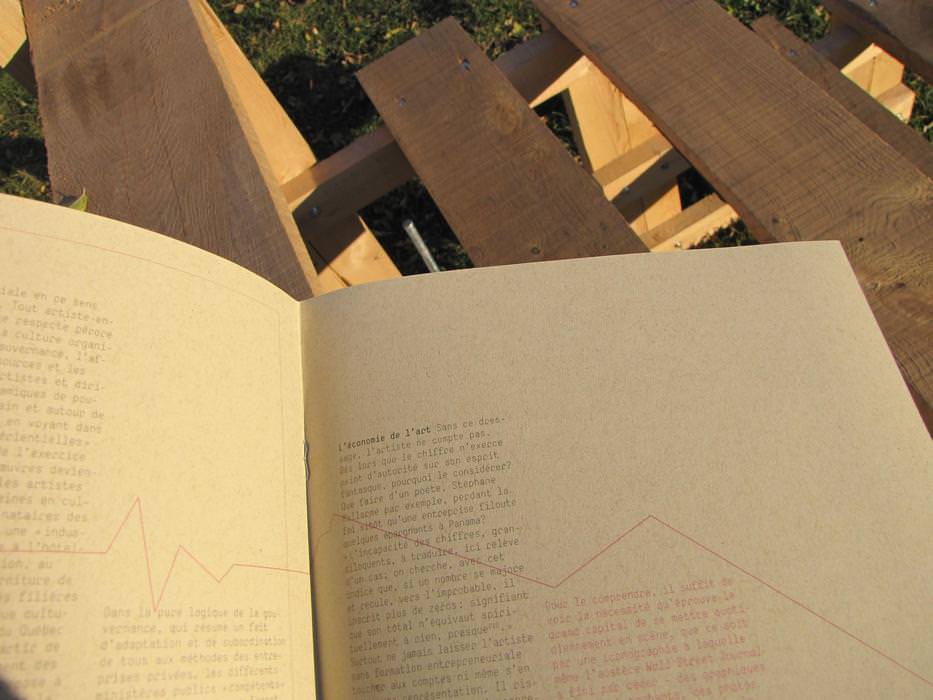 iale en ce sens
. Tout artiste-en-
e respecte pérore
a culture organi-
ouvernance, l'af-
sources et les
rtistes et diri-
amiques de pou-
ain et autour de
en voyant dans
érientielles»
de l'exercice
œuvres devien-
les artistes
eines en cul-
nataires des
une «indus-
s à l'hôtel
ion, au
rniture de
es filières
ue cultu-
du Québec
artir de
ent des
opose à
Dans la pure logique de la gou-
vernance, qui résume un fait
d'adaptation et de subordination
de tous aux méthodes des entre-
prises privées, les différents
ministères publics «compétents»
L'économie de l'art Sans ce dres-
sage, l'artiste ne compte pas.
Dès lors que le chiffre n'exerce
point d'autorité sur son esprit
fantasque, pourquoi le considérer?
Que faire d'un poète, Stéphane
Mallarmé par exemple, perdant la
foi sitôt qu'une entreprise filoute
quelques épargnants à Panama?
«L'incapacité des chiffres, gran-
diloquents, à traduire, ici relève
d'un cas; on cherche, avec cet
indice que, si un nombre se majore
et recule, vers l'improbable, il
inscrit plus de zéros: signifiant
que son total n'équivaut spiri-
tuellement à rien, presque
Surtout ne jamais laisser l'artiste
sans formation entrepreneuriale
toucher aux comptes ni même s'en
représentation. Il ris-
Pour le comprendre, il suffit de
voir la nécessité qu'éprouve le
grand capital de se mettre quoti-
diennement en scène, que ce soit
par une iconographie à laquelle
même l'austère Wall Street Journal
a fini par céder, des graphiques